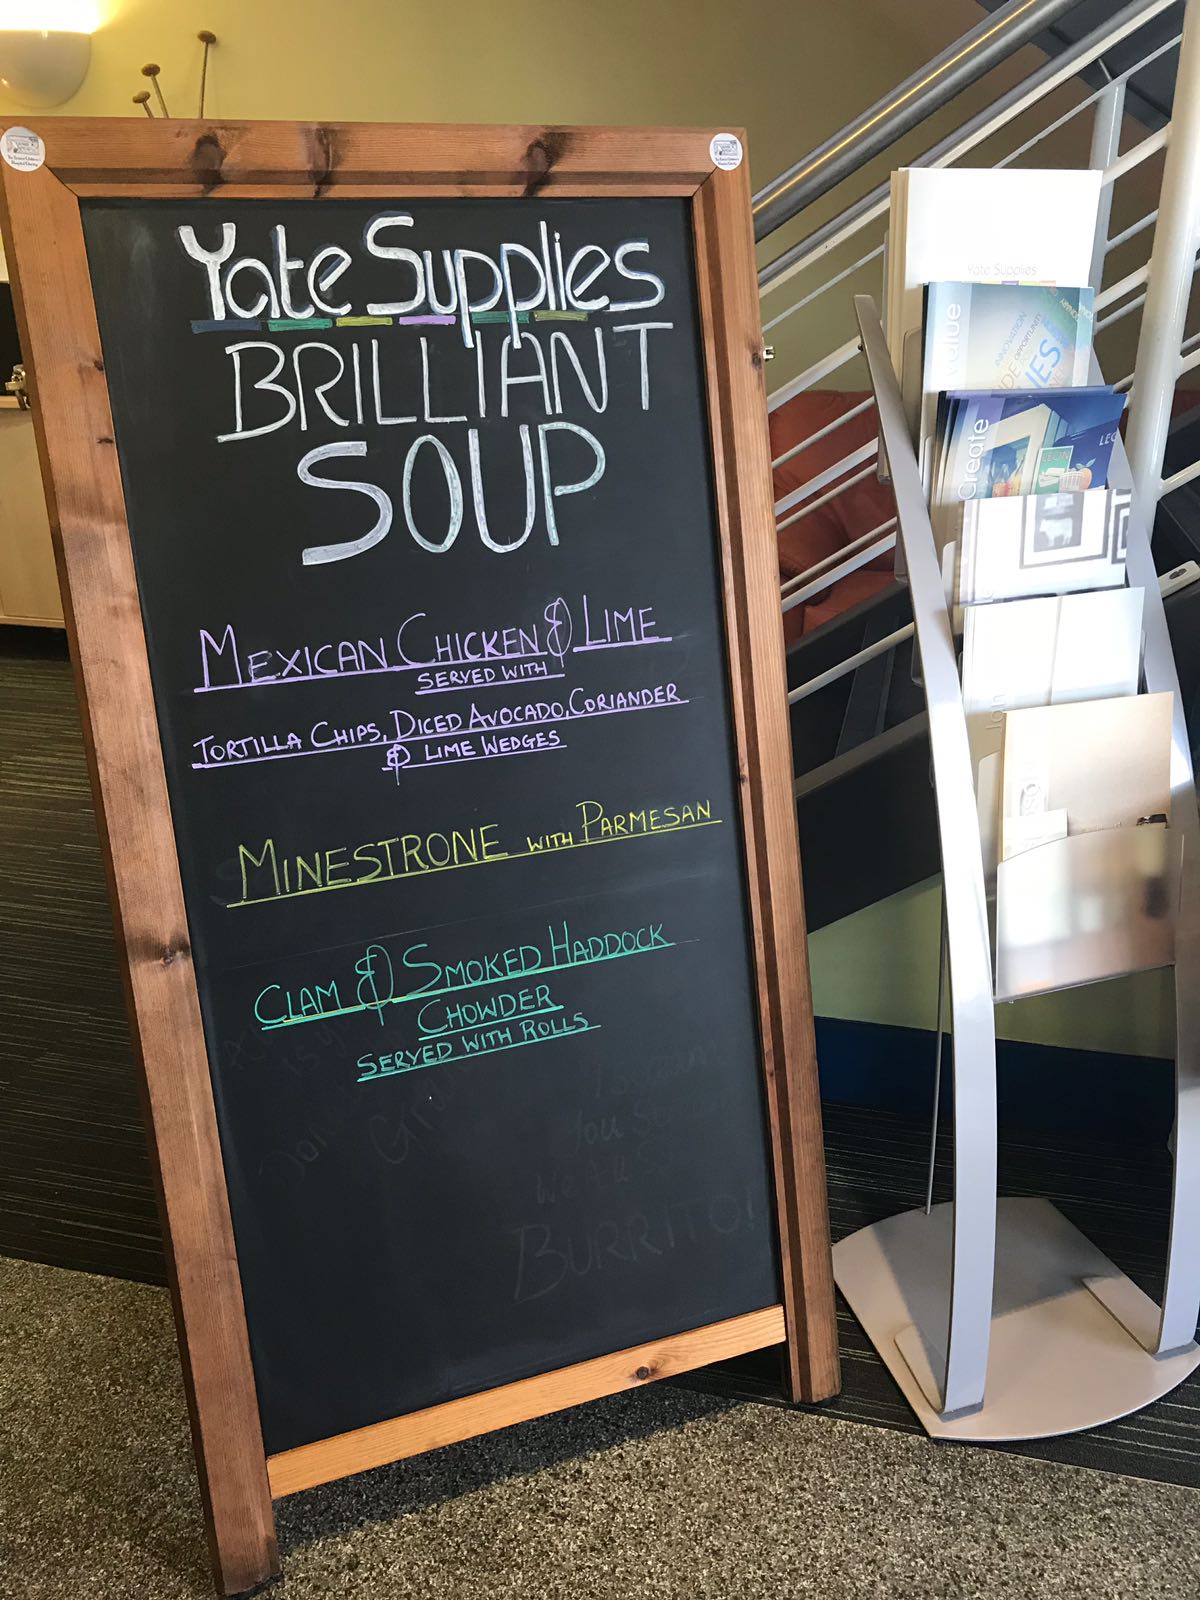 Yate Supplies
BRILLIANT
SOUP
MEXICAN CHICKEN & LIME
SERVED WITH
TORTILLA CHIPS, DICED AVOCADO, CORIANDER
& LIME WEDGES
MINESTRONE WITH PARMESAN
CLAM & SMOKED HADDOCK
CHOWDER
SERVED WITH ROLLS
BURRITO!
Yate Supplies
Value
INNOVATION
OPPORTUNITY
Create
LEON
Join